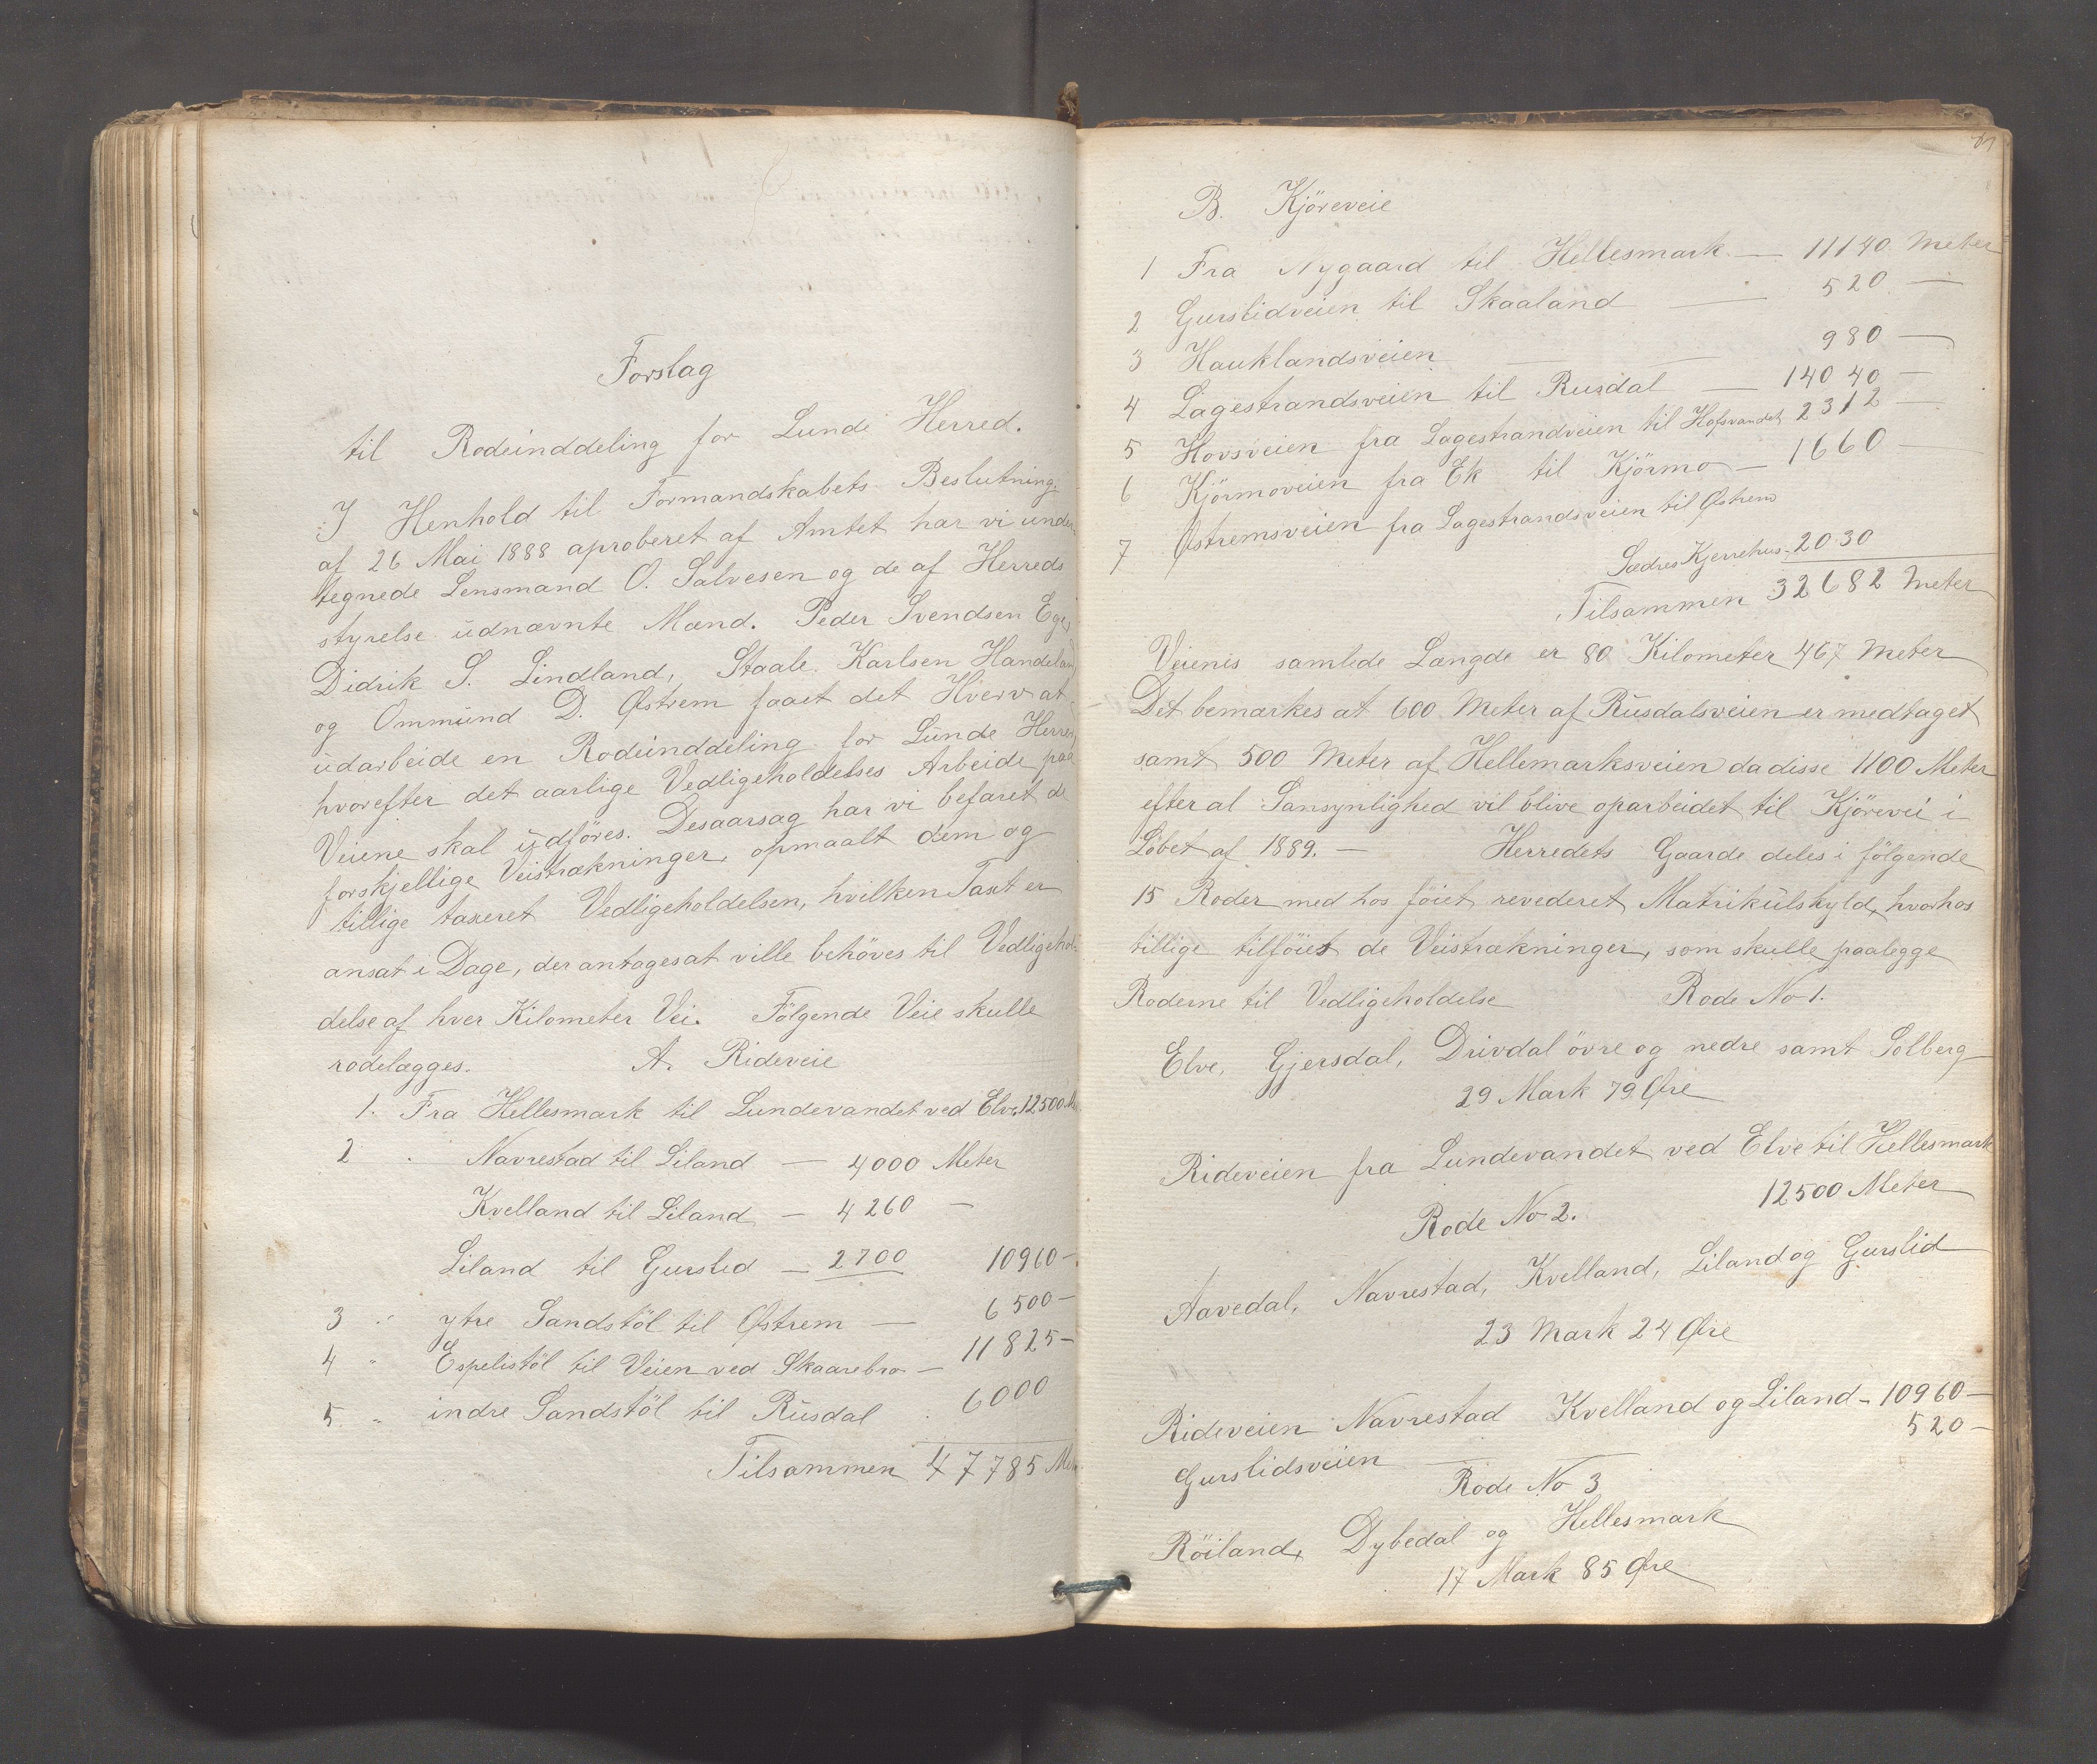 Forslag
til Rodeinddeling for Lunde Herred.
I Henhold til Formandskabets Beslutning
af 26 Mai 1888 aproberet af Amtet har vi under-
tegnede Lensmand O. Salvesen og de af Herreds
styrelse udnævnte Mænd. Peder Svendsen Ege,
Didrik S. Lindland, Staale Karlsen Handeland
og Ommund D. Østrem faaet det Hverv at
udarbeide en Rodeinddeling for Lunde Herred,
hvorefter det aarlige Vedligeholdelses Arbeide paa
Veiene skal udföres. Desaarsag har vi befaret de
forskjellige Veistrækninger, opmaalt dem og
tillige taxeret Vedligeholdelsen, hvilken Taxt er
ansat i Dage, der antages at ville behöves til Vedligehol-
delse af hver Kilometer Vei. Fölgende Veie skulle
rodelægges. A. Rideveie
1. Fra Hellesmark til Lundevandet ved Elve 12500 Me
2 " Navrestad til Liland — 4000 Meter
Kvelland til Liland — 4260 —
Liland til Gurslid — 2700 10960 —
3 " ytre Sandstöl til Østrem — 6500 —
4 " Espelistöl til Veien ved Skaarebro — 11825 —
5. " indre Sandstöl til Rusdal . 6000
Tilsammen 47785 Me
B. Kjöreveie
1 Fra Nygaard til Hellesmark — 11140 Meter
2 Gurslidveien til Skaaland — 520 —
3 Hauklandsveien — — 980 —
4 Lagestrandsveien til Rusdal — 14040 —
5 Hovsveien fra Lagestrandveien til Hofsvandet 2312 —
6 Kjörmoveien fra Ek til Kjörmo — 1660 —
7 Østremsveien fra Lagestrandsveien til Østrem
Sædres Kjerrehus - 2030
Tilsammen 32682 Meter
Veienis samlede Længde er 80 Kilometer 467 Meter
Det bemærkes at 600 Meter af Rusdalsveien er medtaget
samt 500 Meter af Hellemarksveien da disse 1100 Meter
efter al Sansynlighed vil blive oparbeidet til Kjörevei i
Löbet af 1889. — Herredets Gaarde deles i fölgende
15 Roder med hos föiet revederet Matrikulskyld, hvorhos
tillige tilföiet de Veistrækninger, som skulle paalegge
Roderne til Vedligeholdelse Rode No 1.
Elve, Gjersdal, Drivdal övre og nedre samt Solberg
29 Mark 79 Øre
Rideveien fra Lundevandet ved Elve til Hellesmark
12500 Meter
Rode No 2.
Aavedal, Navrestad, Kvelland, Liland og Gurslid
23 Mark 24 Øre
Rideveien Navrestad Kvelland og Liland - 10960 —
Gurslidsveien — 520 —
Rode No 3
Röiland, Dybedal og Hellesmark
17 Mark 85 Øre